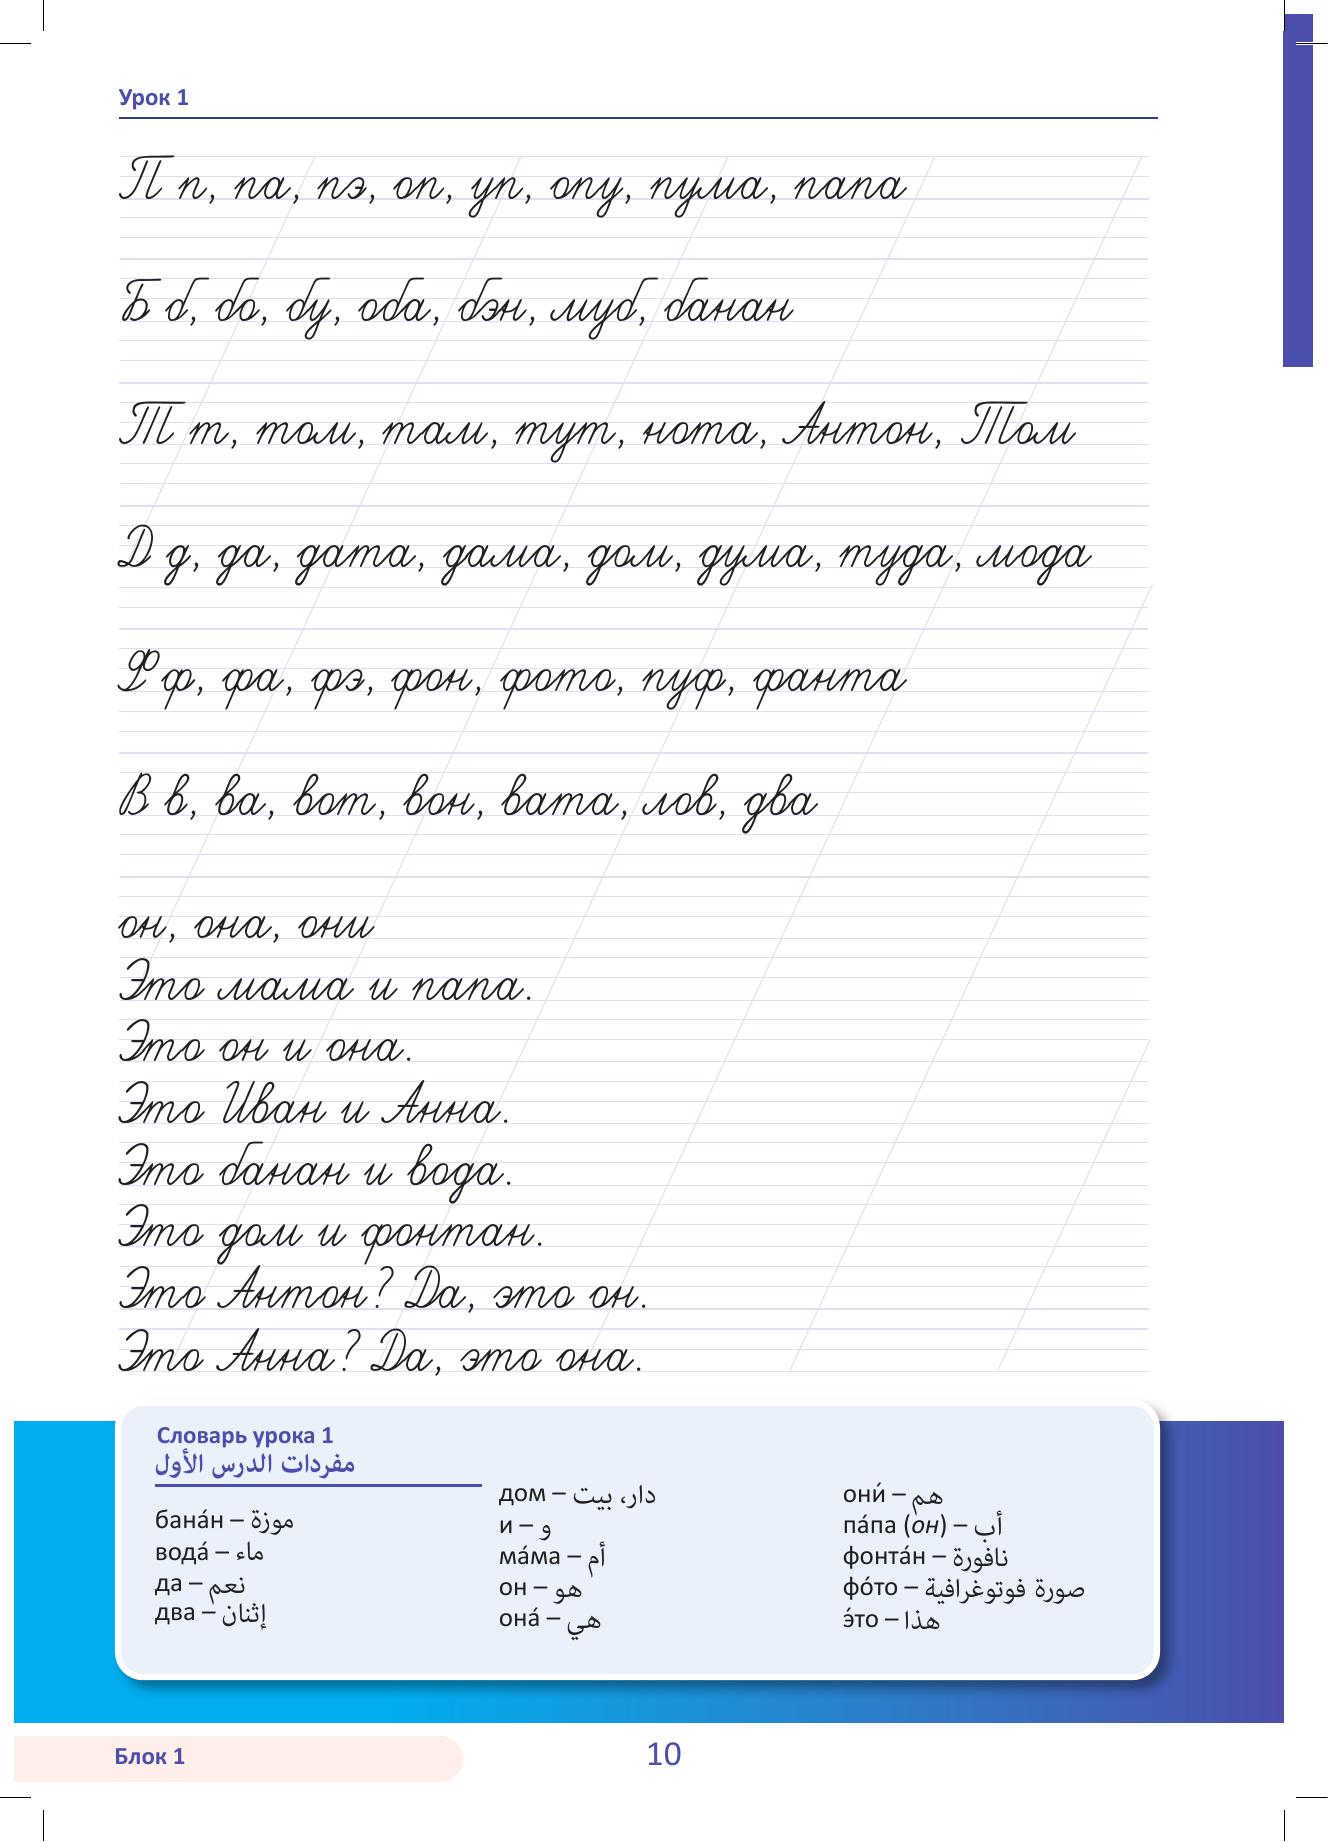 Урок 1
П п, па, пэ, оп, уп, опу, пума, папа
Б б, бо, бу, оба, бэн, муб, банан
Т т, том, там, тут, нота, Антон, Том
Д д, да, дата, дама, дом, дума, туда, мода
Ф ф, фа, фэ, фон, фото, пуф, фанта
В в, ва, вот, вон, вата, лов, два
он, она, они
Это мама и папа.
Это он и она.
Это Иван и Анна.
Это банан и вода.
Это дом и фонтан.
Это Антон? Да, это он.
Это Анна? Да, это она.
Словарь урока 1
مفردات الدرس الأول
бана́н – موزة
вода́ – ماء
да – نعم
два – إثنان
дом – دار، بيت
и – و
ма́ма – أم
он – هو
она́ – هي
они́ – هم
па́па (он) – أب
фонта́н – نافورة
фо́то – صورة فوتوغرافية
э́то – هذا
Блок 1
10